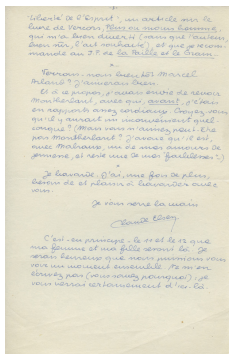 liberté de l'Esprit", un article sur le
livre de Vercors, Plus ou moins homme,
qui m'a bien diverti (sans que l'auteur,
bien sûr, l'ait souhaité) et que je recom-
mande au J.P. de la Paille et le Grain.
*
Verrons-nous bientôt Marcel
Arland? J'aimerais bien.
Et à ce propos, j'avais envie de revoir
Montherlant, avec qui, avant, j'étais
en rapports assez cordiaux. Croyez-vous
qu'il y aurait un inconvénient quel-
conque? (Mais vous n'aimez peut-être
pas Montherlant? J'avoue qu'il est,
avec Malraux, un de mes amours de
jeunesse, et reste un de mes "faiblesses".)
*
Je bavarde. J'ai, une fois de plus,
besoin de et plaisir à bavarder avec
vous.
Je vous serre la main
Claude Elsen
C'est en principe le 11 et le 12 que
ma femme et ma fille seront là. Je
serais heureux que nous puissions vous
voir un moment ensemble. Ne m'en
écrivez pas (vous savez pourquoi), je
vous verrai certainement d'ici-là.